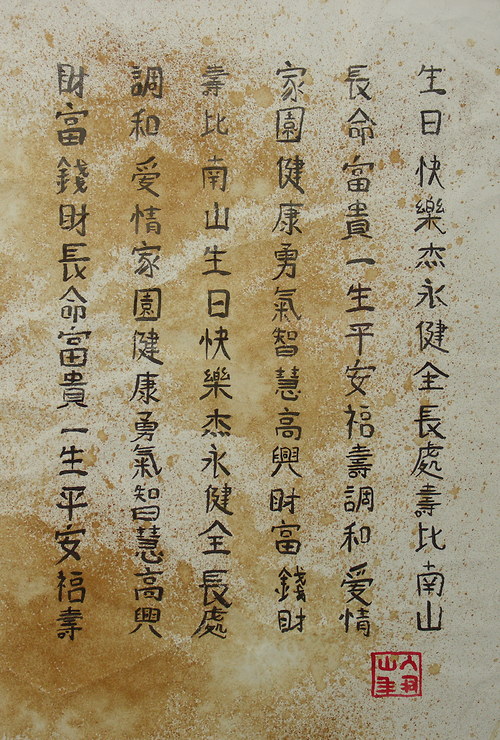 生日快樂杰永健全長處壽比南山
長命富貴一生平安福壽調和愛情
家園健康勇氣智慧高興財富錢財
壽比南山生日快樂杰永健全長處
調和愛情家園健康勇氣智慧高興
財富錢財長命富貴一生平安福壽